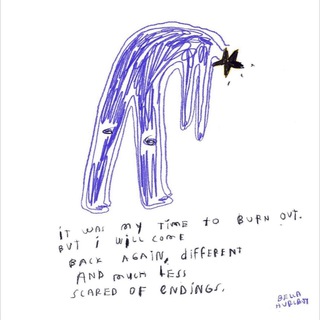 iT WAS MY TiME TO BURN OUT.
BUT i WiLL COME
BACK AGAIN, DiFFERENT
AND MUCH LESS
SCARED OF ENDiNGS.
BELLA